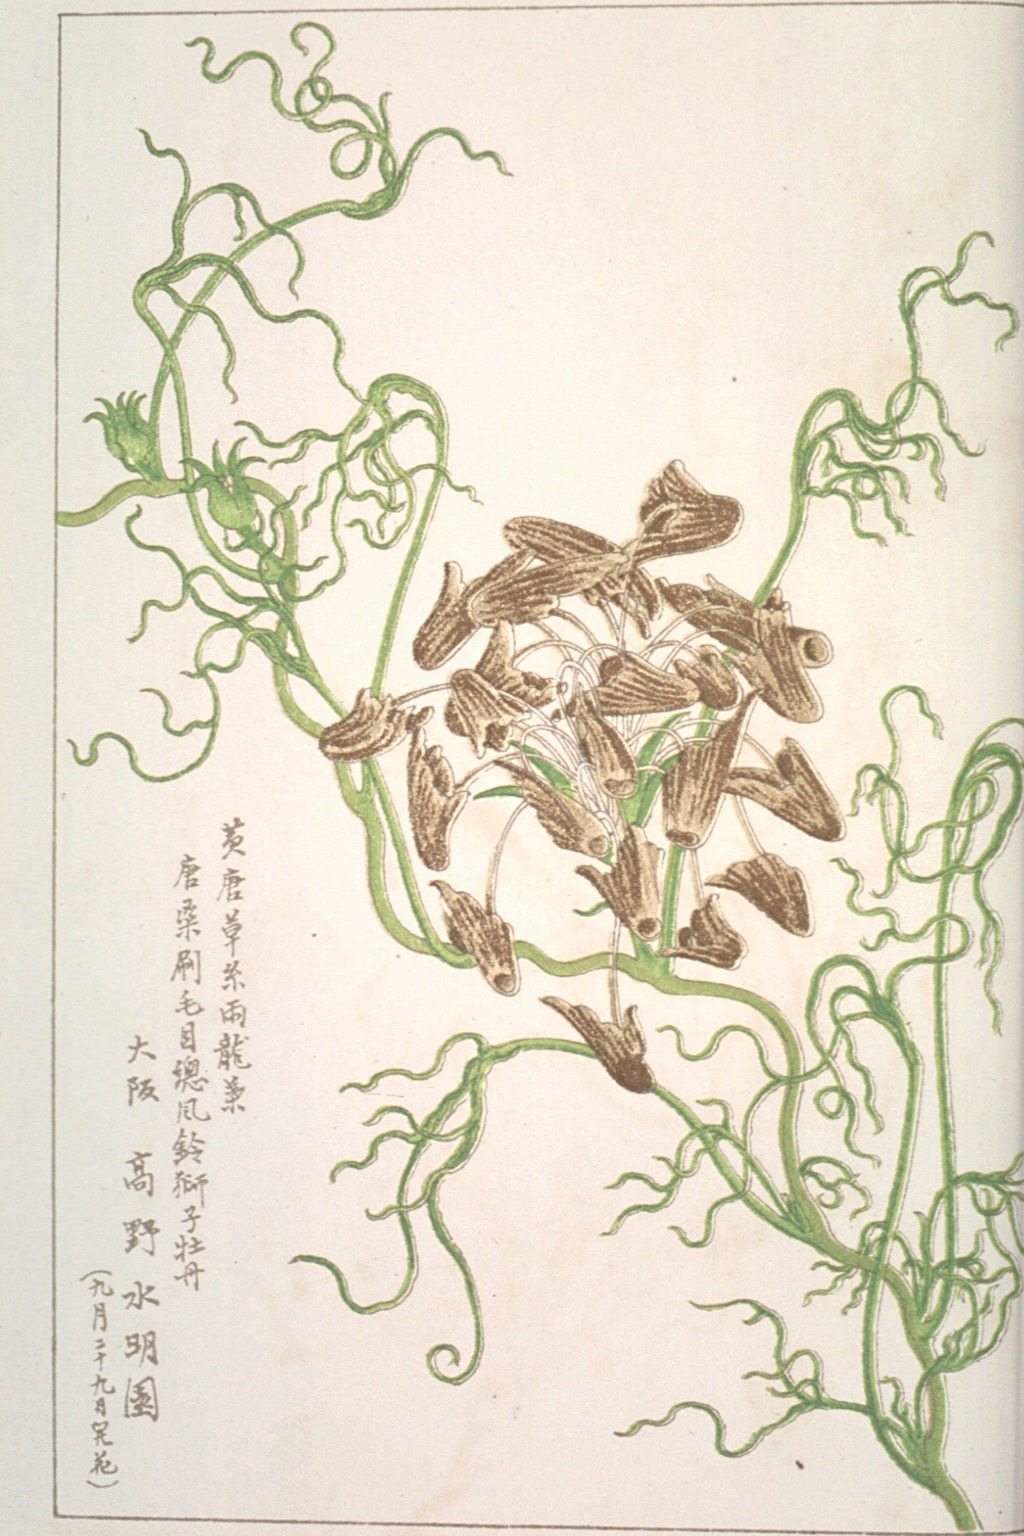 黄唐草糸雨龍葉
唐桑刷毛目總風鈴獅子牡丹
大阪 高野水明園
(九月二十九日開花)